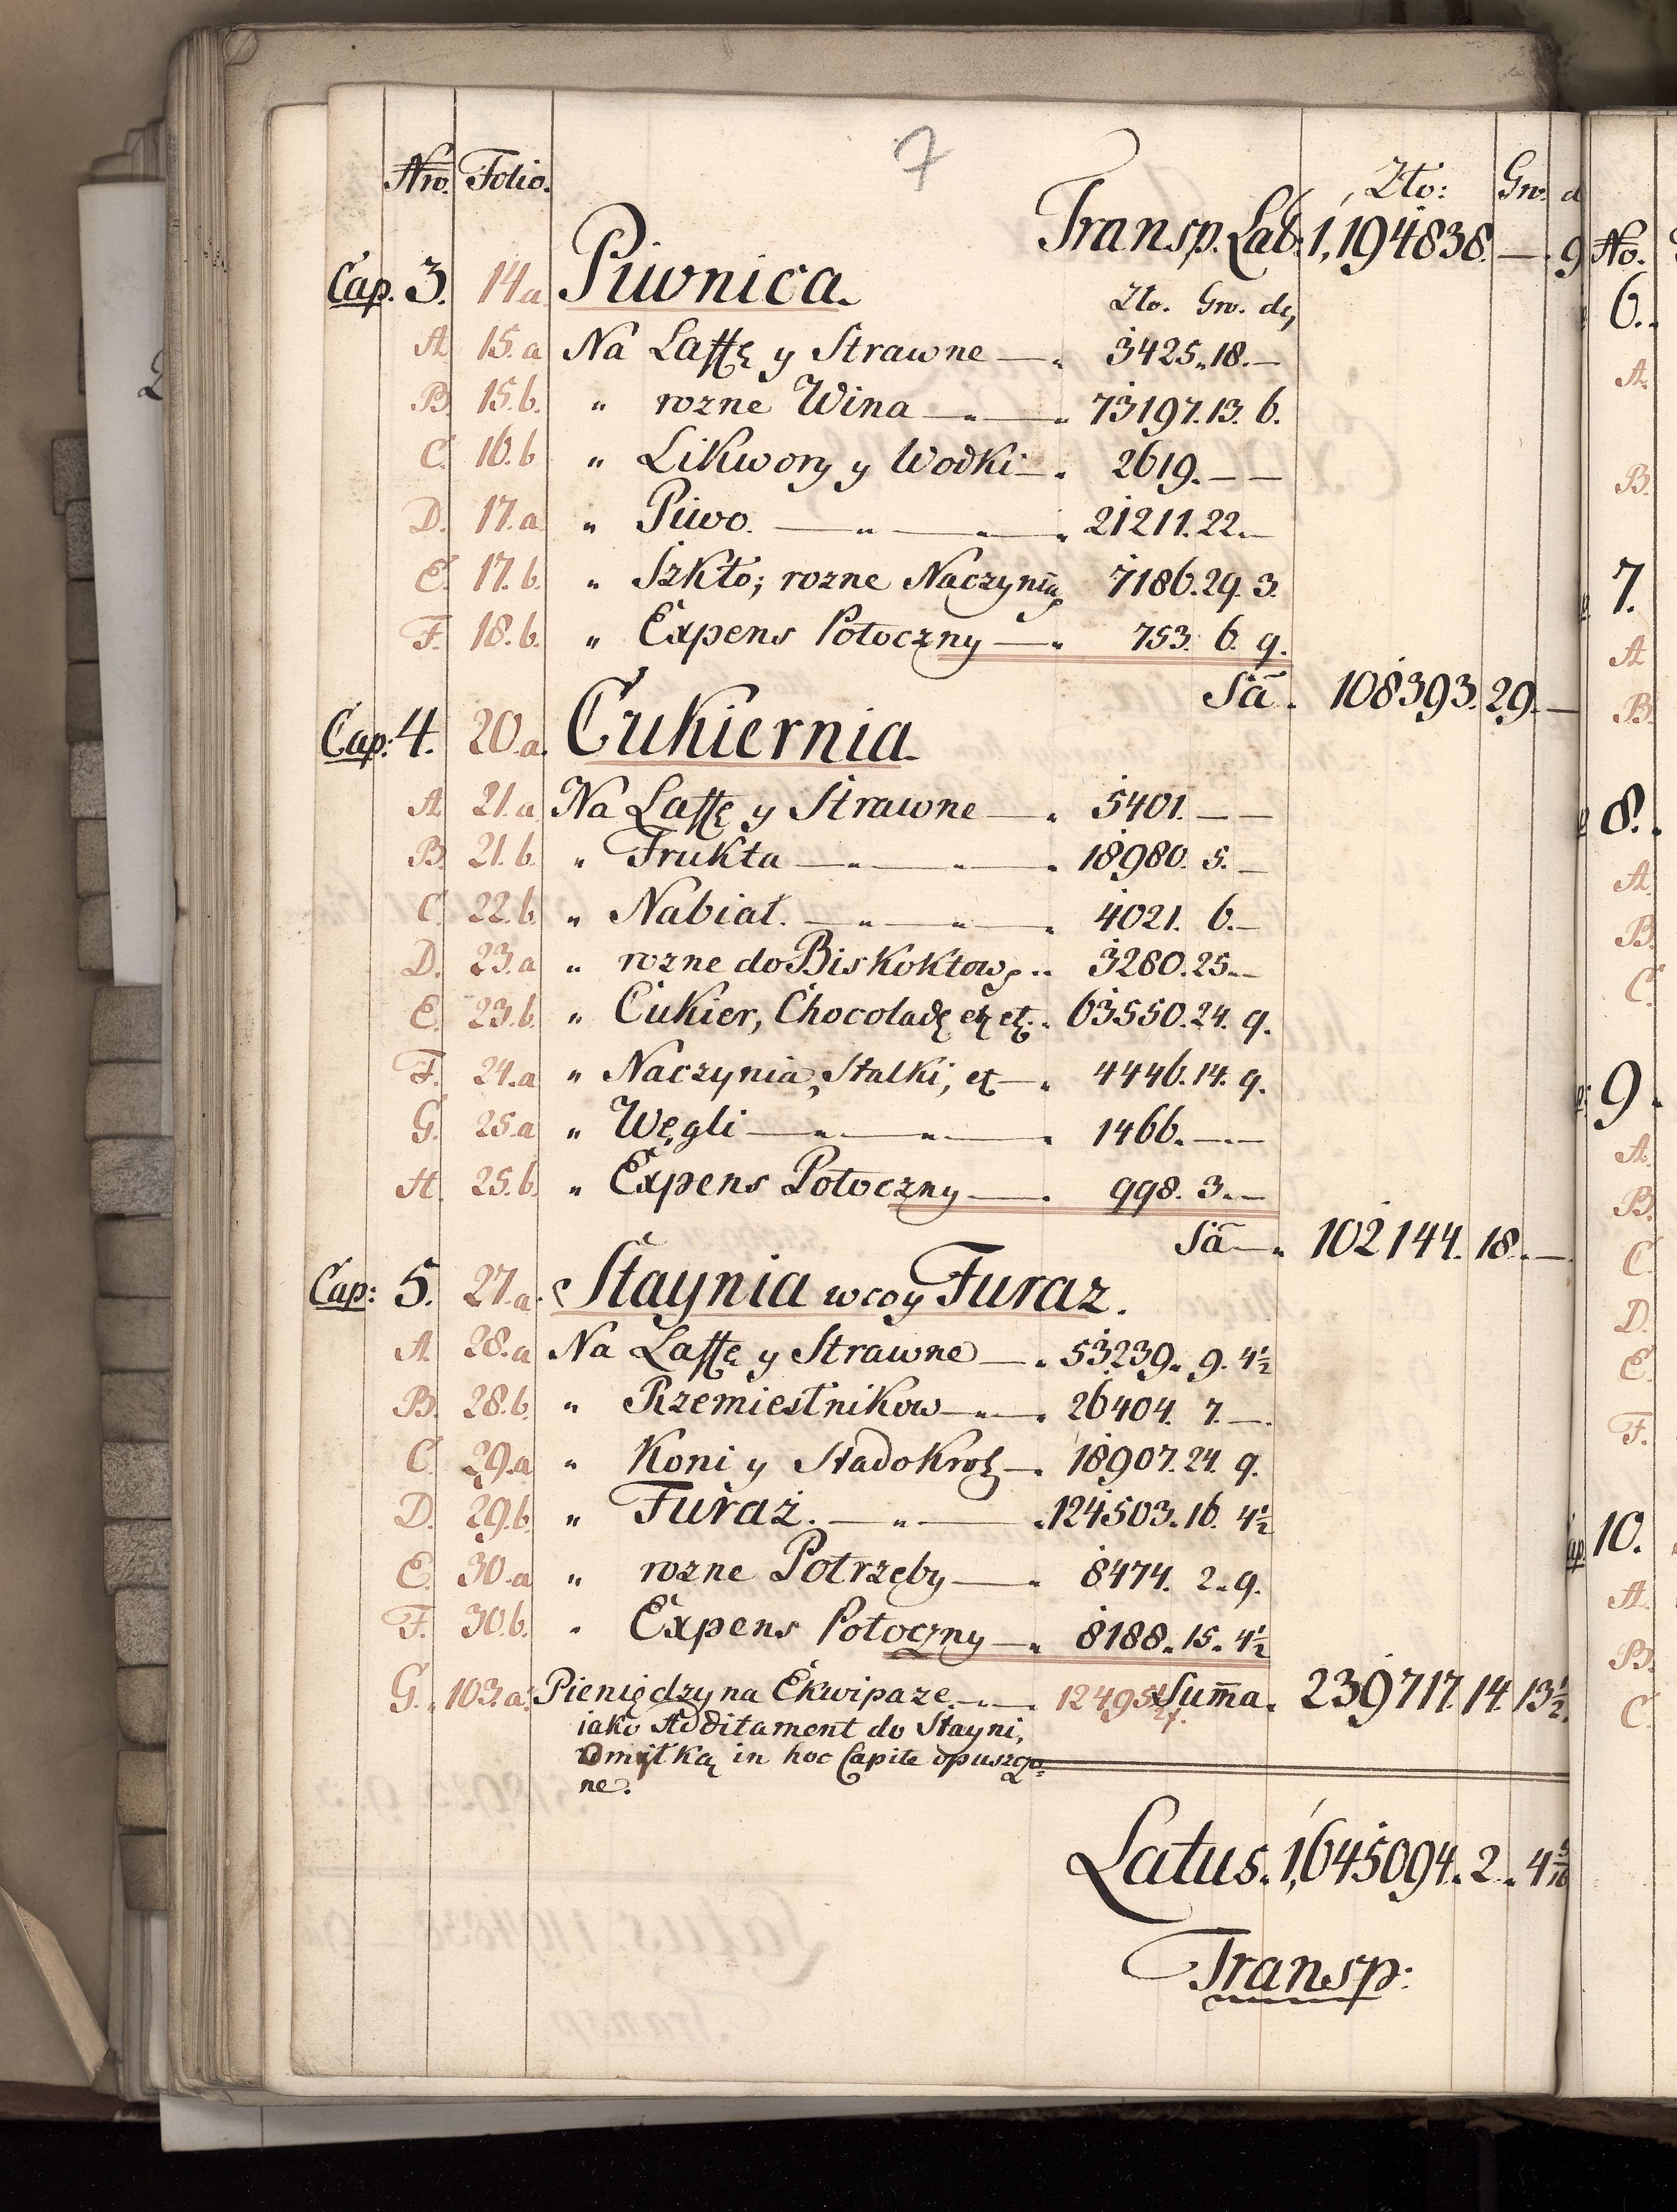 7
Nro. Folio. Zło: Gro. d
Transp. Lat: 1,194838. — 9
Cap. 3. 14a Piwnica.
Zło. Gro. dę
A 15.a Na Laffę y Strawne —„ 3425„18.—
B. 15.b. „ rozne Wina —„— „ 73197.13. 6.
C. 16.b „ Likwory y Wodki —. 2619. — —
D. 17.a „ Piwo. —„—„—„ 21211.22.—
E. 17.b. „ Szkło; rozne Naczynia 7186.29. 3.
F. 18.b. „ Expens Potoczny —„ 753. 6. 9.
Sã. 108393.29.—
Cap: 4. 20.a. Cukiernia.
A 21.a Na Laffę y Strawne —„ 5401. — —
B. 21.b. „ Frukta —„—„—„ 18980. 5.—
C. 22.b. „ Nabiał. —„—„—„ 4021. 6.—
D. 23.a „ rozne do Biskoktow „.. 3280.25.—
E. 23.b. „ Cukier, Chocoladę etz etz. „ 63550.24. 9.
F. 24.a „ Naczynia, Stalki, etz —„ 4446.14. 9.
G. 25.a „ Węgli —„—„—„ 1466. —.—
H. 25.b. „ Expens Potoczny —. 998. 3.—
Sã—„ 102144. 18.—
Cap: 5. 27.a. Staynia wcoy Furaz.
A. 28.a Na Laffę y Strawne —„ 53239„ 9. 4½
B. 28.b. „ Rzemiestnikow —„—„ 26404. 7.—.
C. 29.a „ Koni y Stado Krol —. 18907.24. 9.
D. 29.b „ Furaż. —„— „124503.16. 4½
E. 30.a „ rozne Potrzeby —„ 8474. 2„9.
F. 30.b. „ Expens Potoczny —„ 8188„15„4½
G. 103.a. Pieniędzy na Ekwipaze. —„— 12495 Sum̃a. 239717.14.13½
iako Additament do Stayni,
omyłką in hoc Capite opuszczo=
ne.
Latus. 1,645094.2„4
Transp:
No.
6.
A.
B.
7.
A
B.
8.
A.
B.
C.
9.
A.
B.
C.
D.
E.
F.
10.
A.
B.
C.